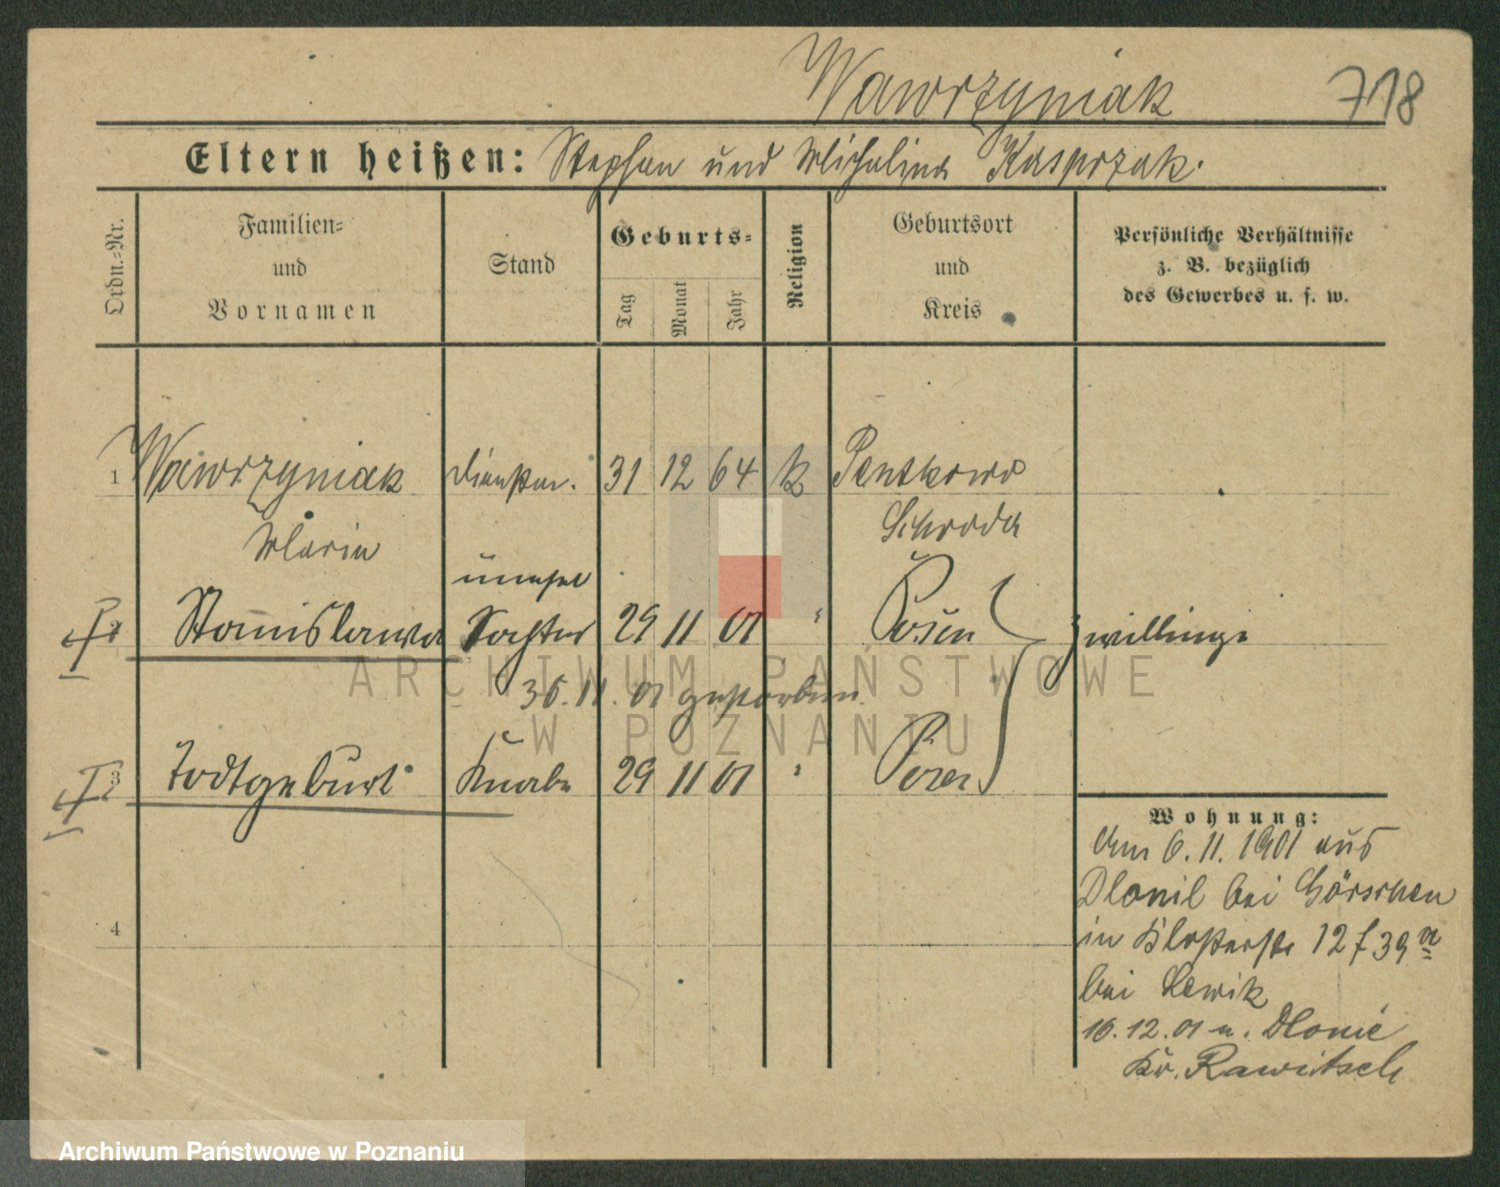 Wawrzyniak 718
Eltern heißen: Stephan und Michalina Kasprzak.
Ordn.-Nr.
Familien-
und
Vornamen
Stand
Geburts-
Tag
Monat
Jahr
Religion
Geburtsort
und
Kreis
Persönliche Verhältnisse
z. B. bezüglich
des Gewerbes u. s. w.
1 Wawrzyniak 31 12 64 k Pentkowo
Maria Schroda
unehel
Stanislawa Tochter 29 11 01 " Posen Zwillinge
30.11.01 gestorben
3 Todtgeburt Knabe 29 11 01 " Posen
4
Wohnung:
Am 6.11.1901 aus
Dlonie bei Görchen
in Klosterstr 12
bei
16.12.01 n. Dlonie
Kr. Rawitsch
ARCHIWUM PAŃSTWOWE
W POZNANIU
Archiwum Państwowe w Poznaniu